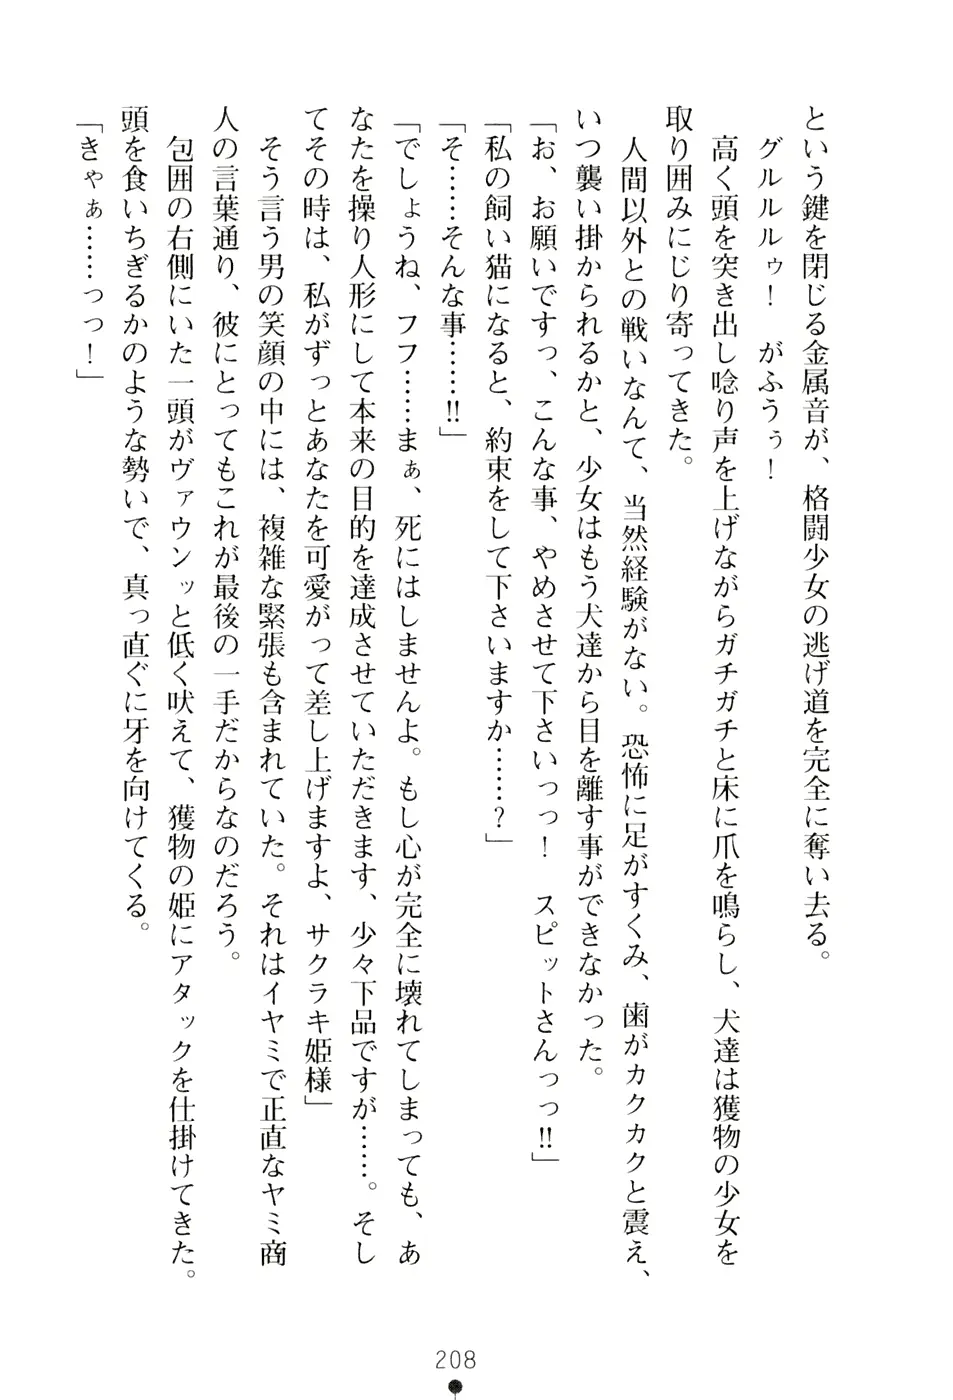 という鍵を閉じる金属音が、格闘少女の逃げ道を完全に奪い去る。
グルルルゥ！　がふうぅ！
高く頭を突き出し唸り声を上げながらガチガチと床に爪を鳴らし、犬達は獲物の少女を
取り囲みにじり寄ってきた。
人間以外との戦いなんて、当然経験がない。恐怖に足がすくみ、歯がカクカクと震え、
いつ襲い掛かられるかと、少女はもう犬達から目を離す事ができなかった。
「お、お願いですっ、こんな事、やめさせて下さいっっ！　スピットさんっっ‼」
「私の飼い猫になると、約束をして下さいますか……？」
「そ……そんな事……‼」
「でしょうね、フフ……まぁ、死にはしませんよ。もし心が完全に壊れてしまっても、あ
なたを操り人形にして本来の目的を達成させていただきます、少々下品ですが……。そし
てその時は、私がずっとあなたを可愛がって差し上げますよ、サクラキ姫様」
そう言う男の笑顔の中には、複雑な緊張も含まれていた。それはイヤミで正直なヤミ商
人の言葉通り、彼にとってもこれが最後の一手だからなのだろう。
包囲の右側にいた一頭がヴァウンッと低く吠えて、獲物の姫にアタックを仕掛けてきた。
頭を食いちぎるかのような勢いで、真っ直ぐに牙を向けてくる。
「きゃぁ……っっ！」
208